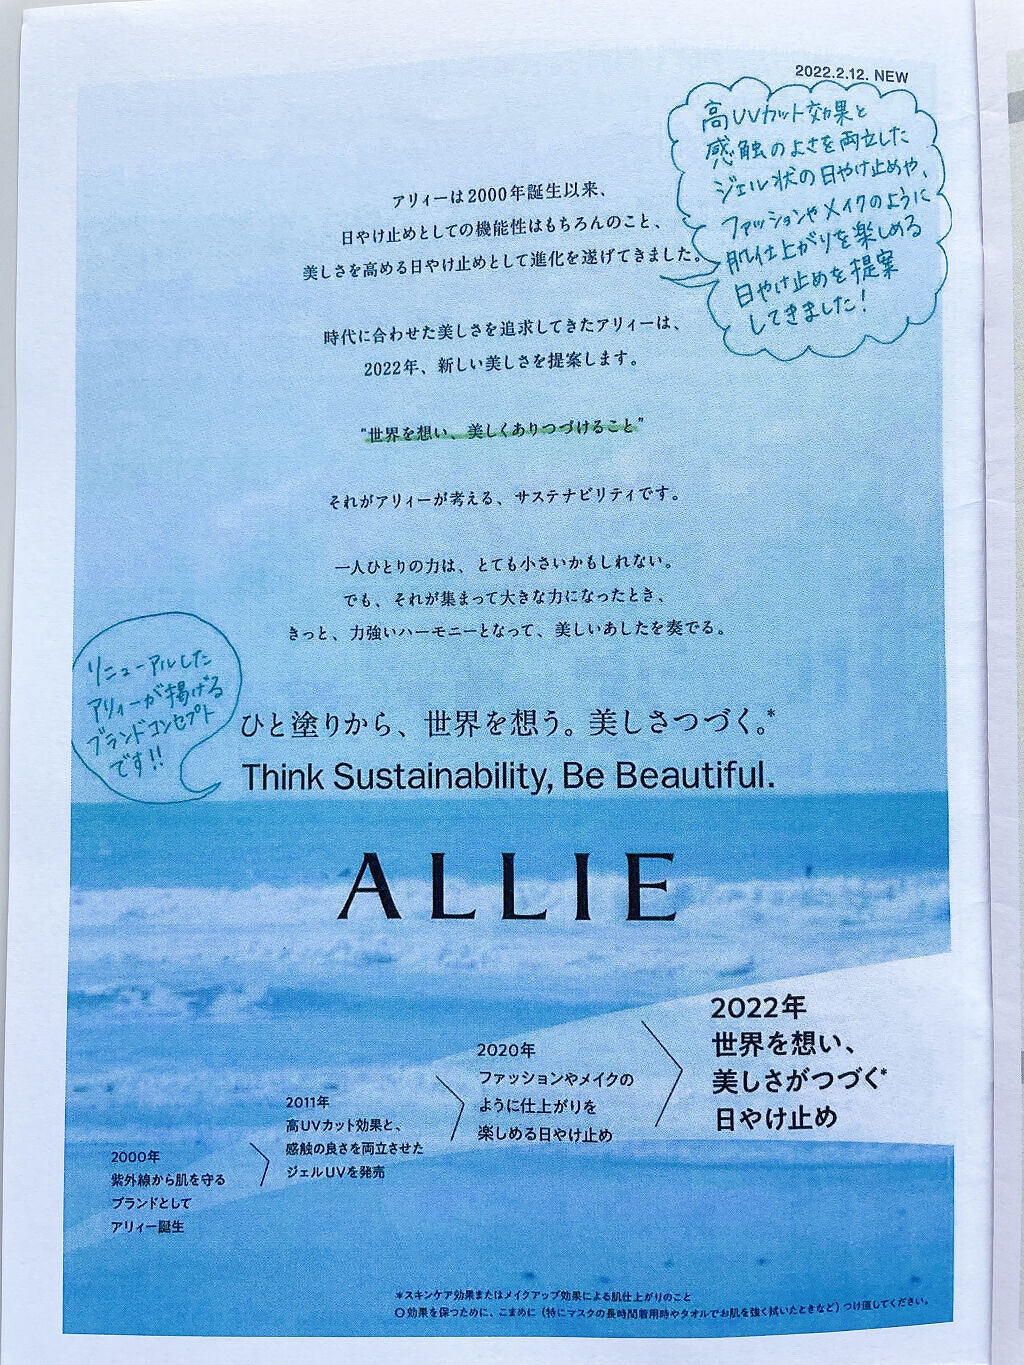 2022.2.12. NEW
高UVカット効果と
感触のよさを両立した
ジェル状の日やけ止めや、
ファッションやメイクのように
肌仕上がりを楽しめる
日やけ止めを提案
してきました!
アリィーは2000年誕生以来、
日やけ止めとしての機能性はもちろんのこと、
美しさを高める日やけ止めとして進化を遂げてきました。
時代に合わせた美しさを追求してきたアリィーは、
2022年、新しい美しさを提案します。
“世界を想い、美しくありつづけること”
それがアリィーが考える、サステナビリティです。
一人ひとりの力は、とても小さいかもしれない。
でも、それが集まって大きな力になったとき、
きっと、力強いハーモニーとなって、美しいあしたを奏でる。
リニューアルした
アリィーが掲げる
ブランドコンセプト
です!!
ひと塗りから、世界を想う。美しさつづく。*
Think Sustainability, Be Beautiful.
ALLIE
2000年
紫外線から肌を守る
ブランドとして
アリィー誕生
2011年
高UVカット効果と、
感触の良さを両立させた
ジェルUVを発売
2020年
ファッションやメイクの
ように仕上がりを
楽しめる日やけ止め
2022年
世界を想い、
美しさがつづく*
日やけ止め
*スキンケア効果またはメイクアップ効果による肌仕上がりのこと
○効果を保つために、こまめに(特にマスクの長時間着用時やタオルでお肌を強く拭いたときなど)つけ直してください。